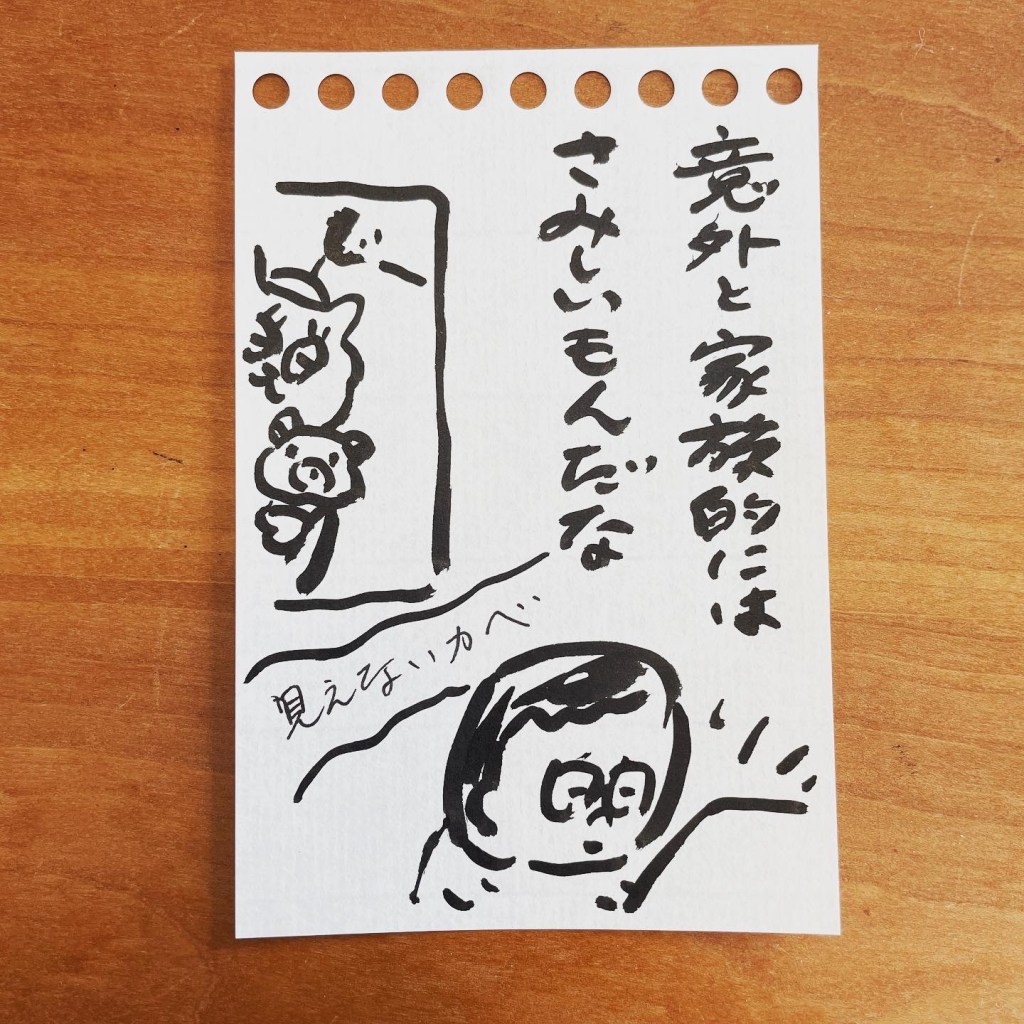 意外と家族的には
さみしいもんだな
見えないカベ